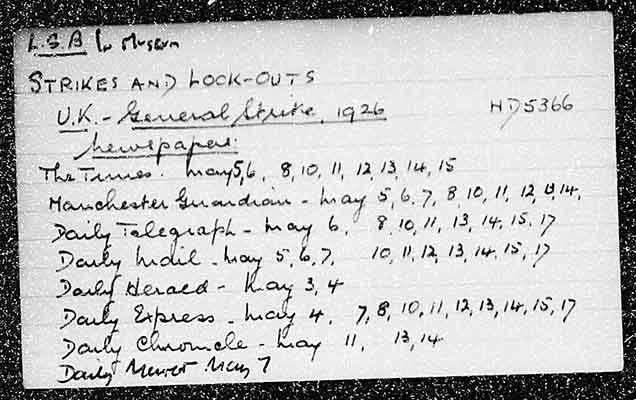 L.S.B In Museum
STRIKES AND LOCK-OUTS
U.K. - General Strike, 1926 HD5366
Newspapers:
The Times. May 5,6, 8,10, 11, 12, 13, 14, 15
Manchester Guardian - May 5, 6, 7, 8, 10, 11, 12, 13, 14,
Daily Telegraph - May 6, 8, 10, 11, 13, 14, 15, 17
Daily Mail - May 5, 6, 7, 10, 11, 12, 13, 14, 15, 17
Daily Herald - May 3, 4
Daily Express - May 4, 7, 8, 10, 11, 12, 13, 14, 15, 17
Daily Chronicle - May 11, 13, 14
Daily May 7